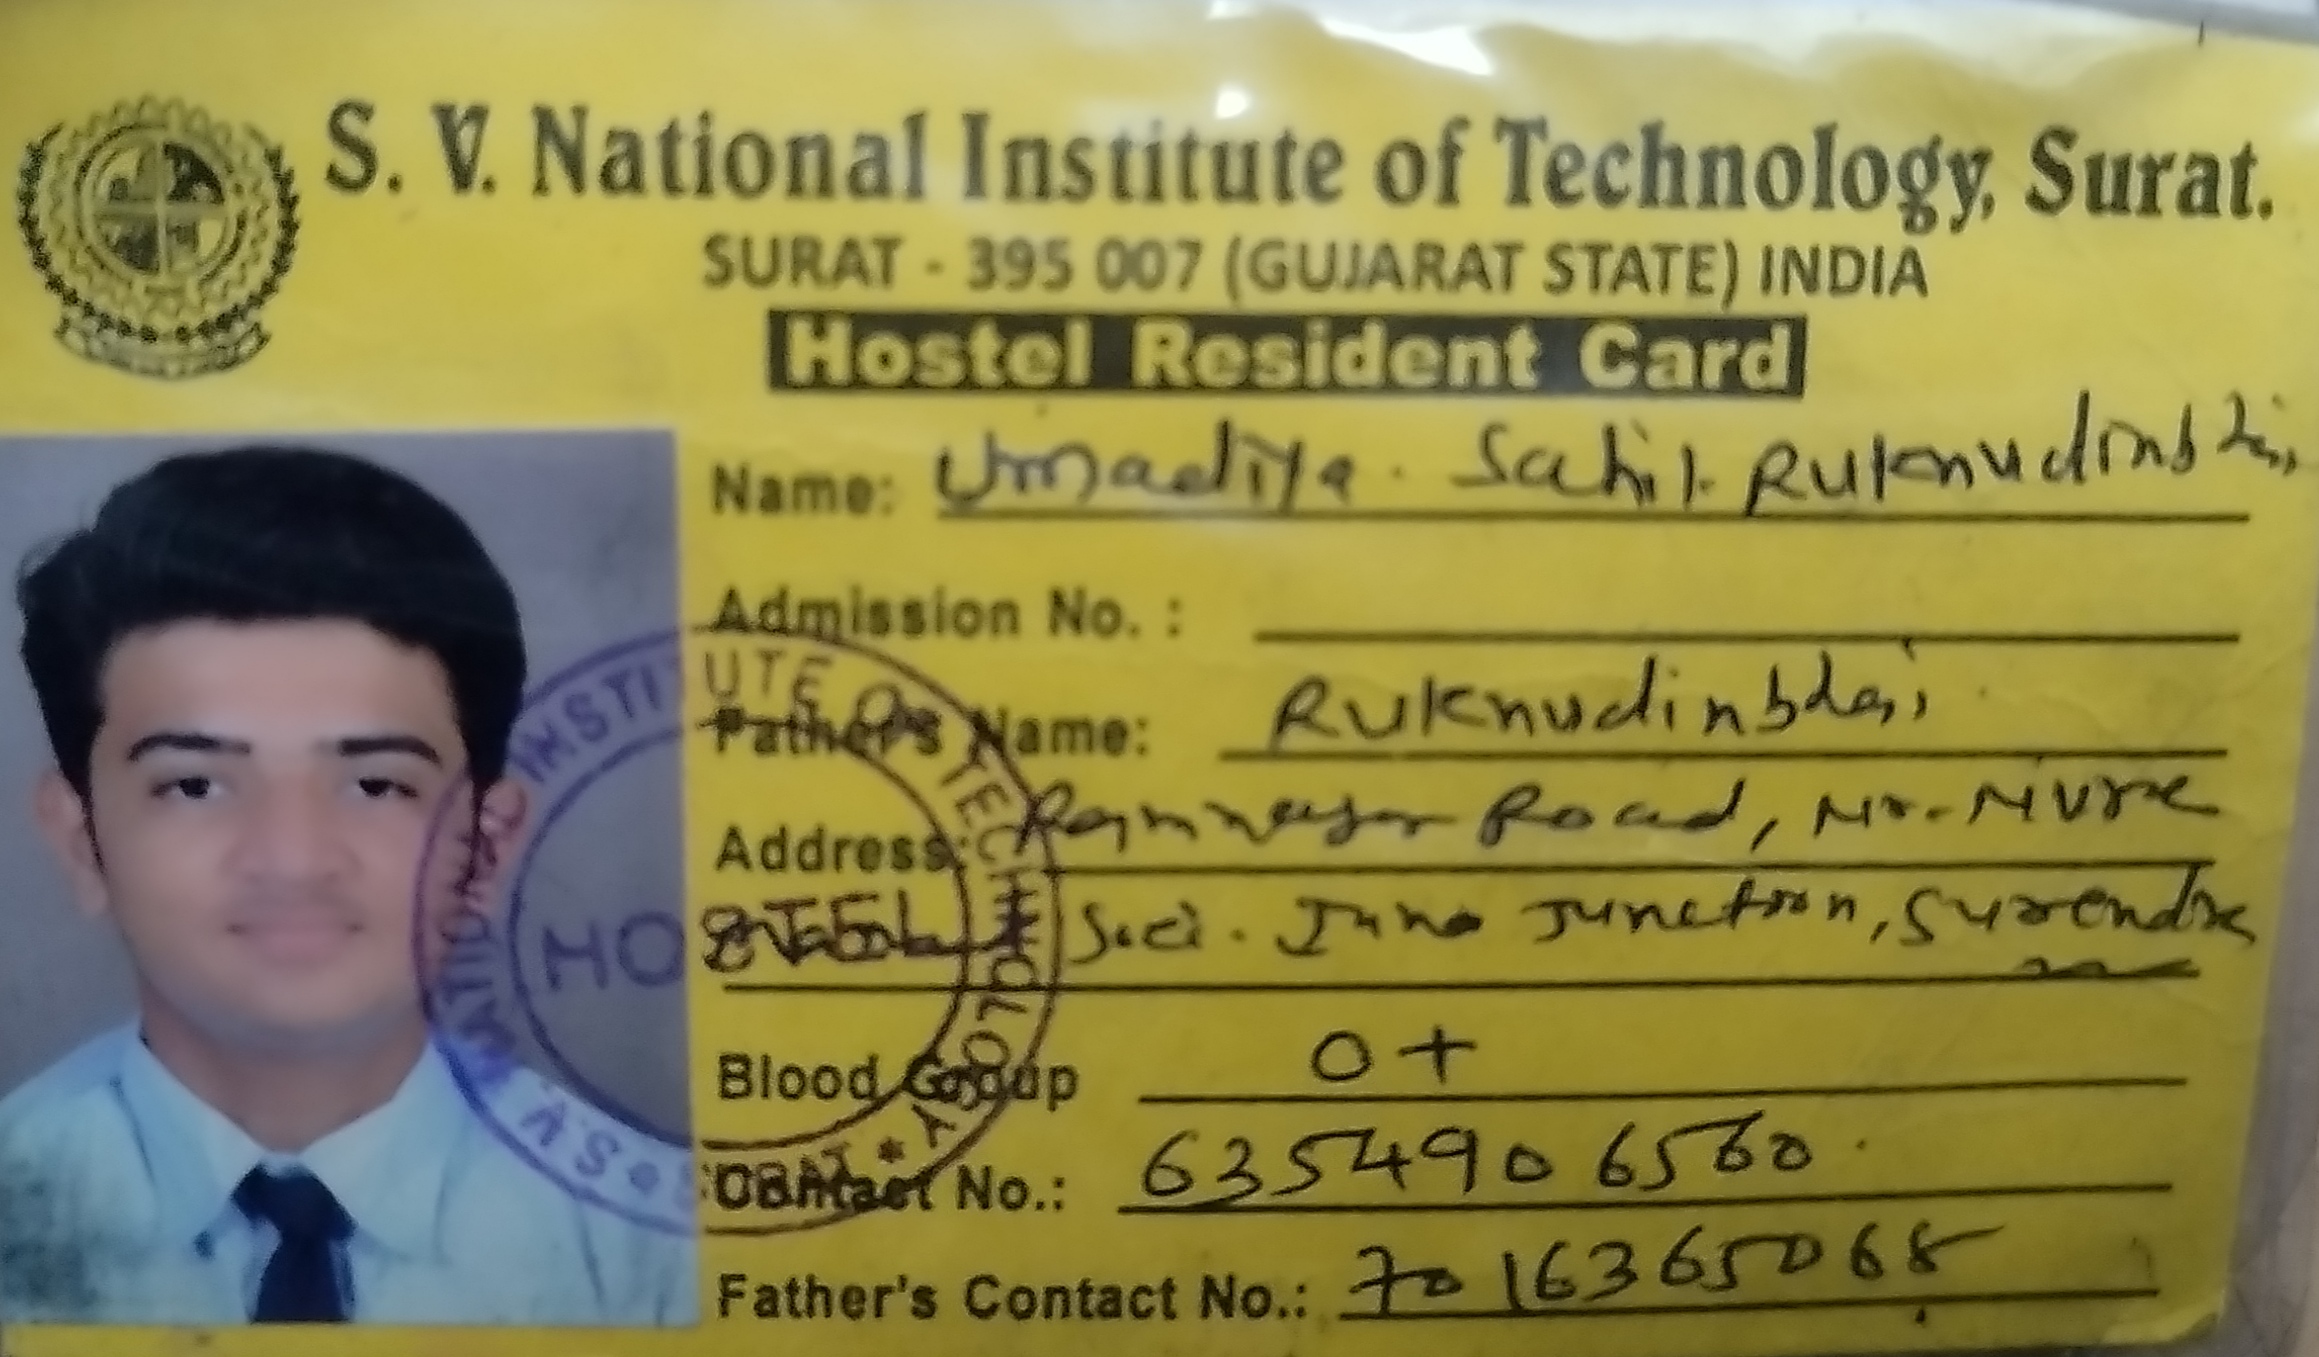 S. V. National Institute of Technology, Surat.
SURAT - 395 007 (GUJARAT STATE) INDIA
Hostel Resident Card
Name: Umadiya. Sahil. Ruknudinbhai
Admission No. :
Father's Name: Ruknudinbhai
Address: Road,
Soci. Junction, Surendra
Blood Group O+
Contact No.: 6354906560
Father's Contact No.: 7016365068
S.V. NATIONAL INSTITUTE OF TECHNOLOGY * SURAT *
HOSTEL